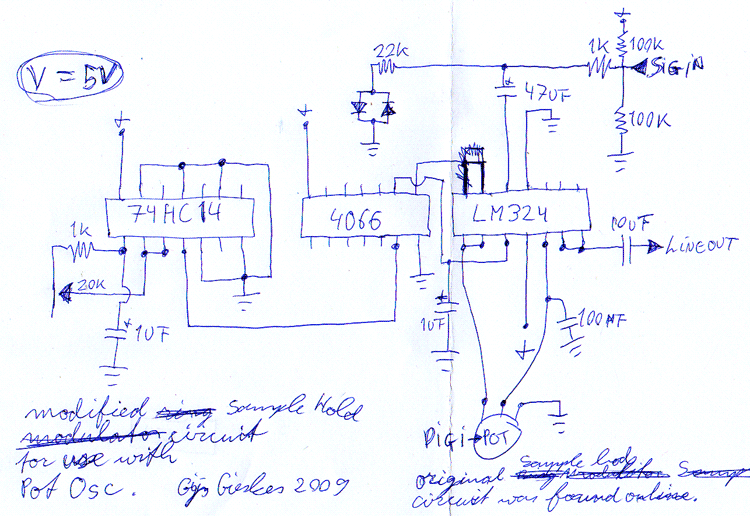 V = 5V
22K
1K
100K
SIGIN
47UF
100K
74HC14
4066
LM324
1K
20K
10UF
LINEOUT
1UF
1UF
100NF
DIGI → POT
modified Sample Hold
modulator circuit
for use with
Pot Osc. Gijs Gieskes 2009
original
circuit was found online.